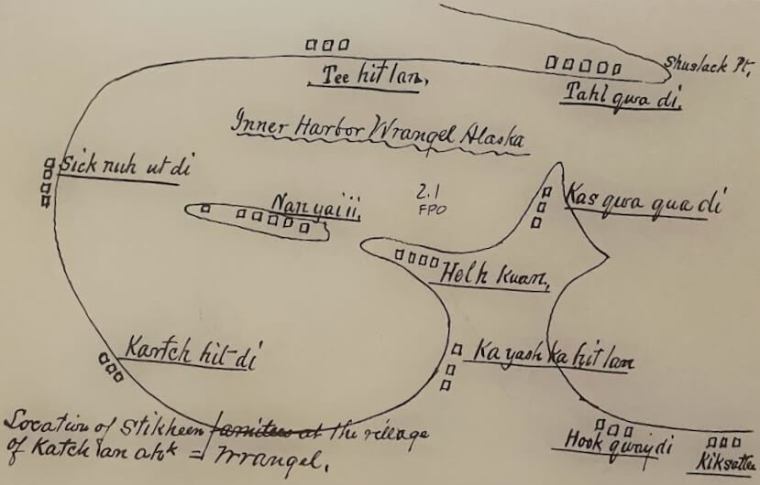 Shuslack Pt,
Tee hit lan,
Tahl qwa di,
Inner Harbor Wrangel Alaska
Sick nuh ut di
Nan yai ii,
2.1
FPO
Kas qwa qua di
Helh Kuan,
Kartch hit-di
Ka yash ka hit lan
Hook qway di
Kiksattee
Location of Stikheen families at the village
of Katch an ahk = Wrangel.